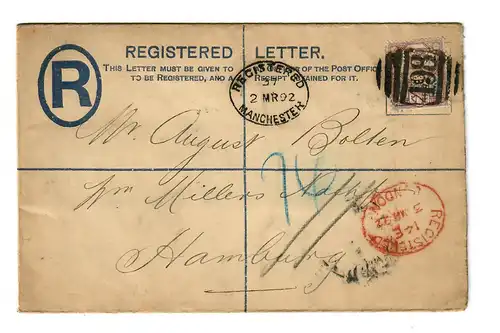 REGISTERED LETTER.
THIS LETTER MUST BE GIVEN TO AN OFFICER OF THE POST OFFICE
TO BE REGISTERED, AND A RECEIPT OBTAINED FOR IT.
R
REGISTERED
2 MR 92
MANCHESTER
Mr. August Bolten
Wm Millers
Hamburg
REGISTERED
LONDON